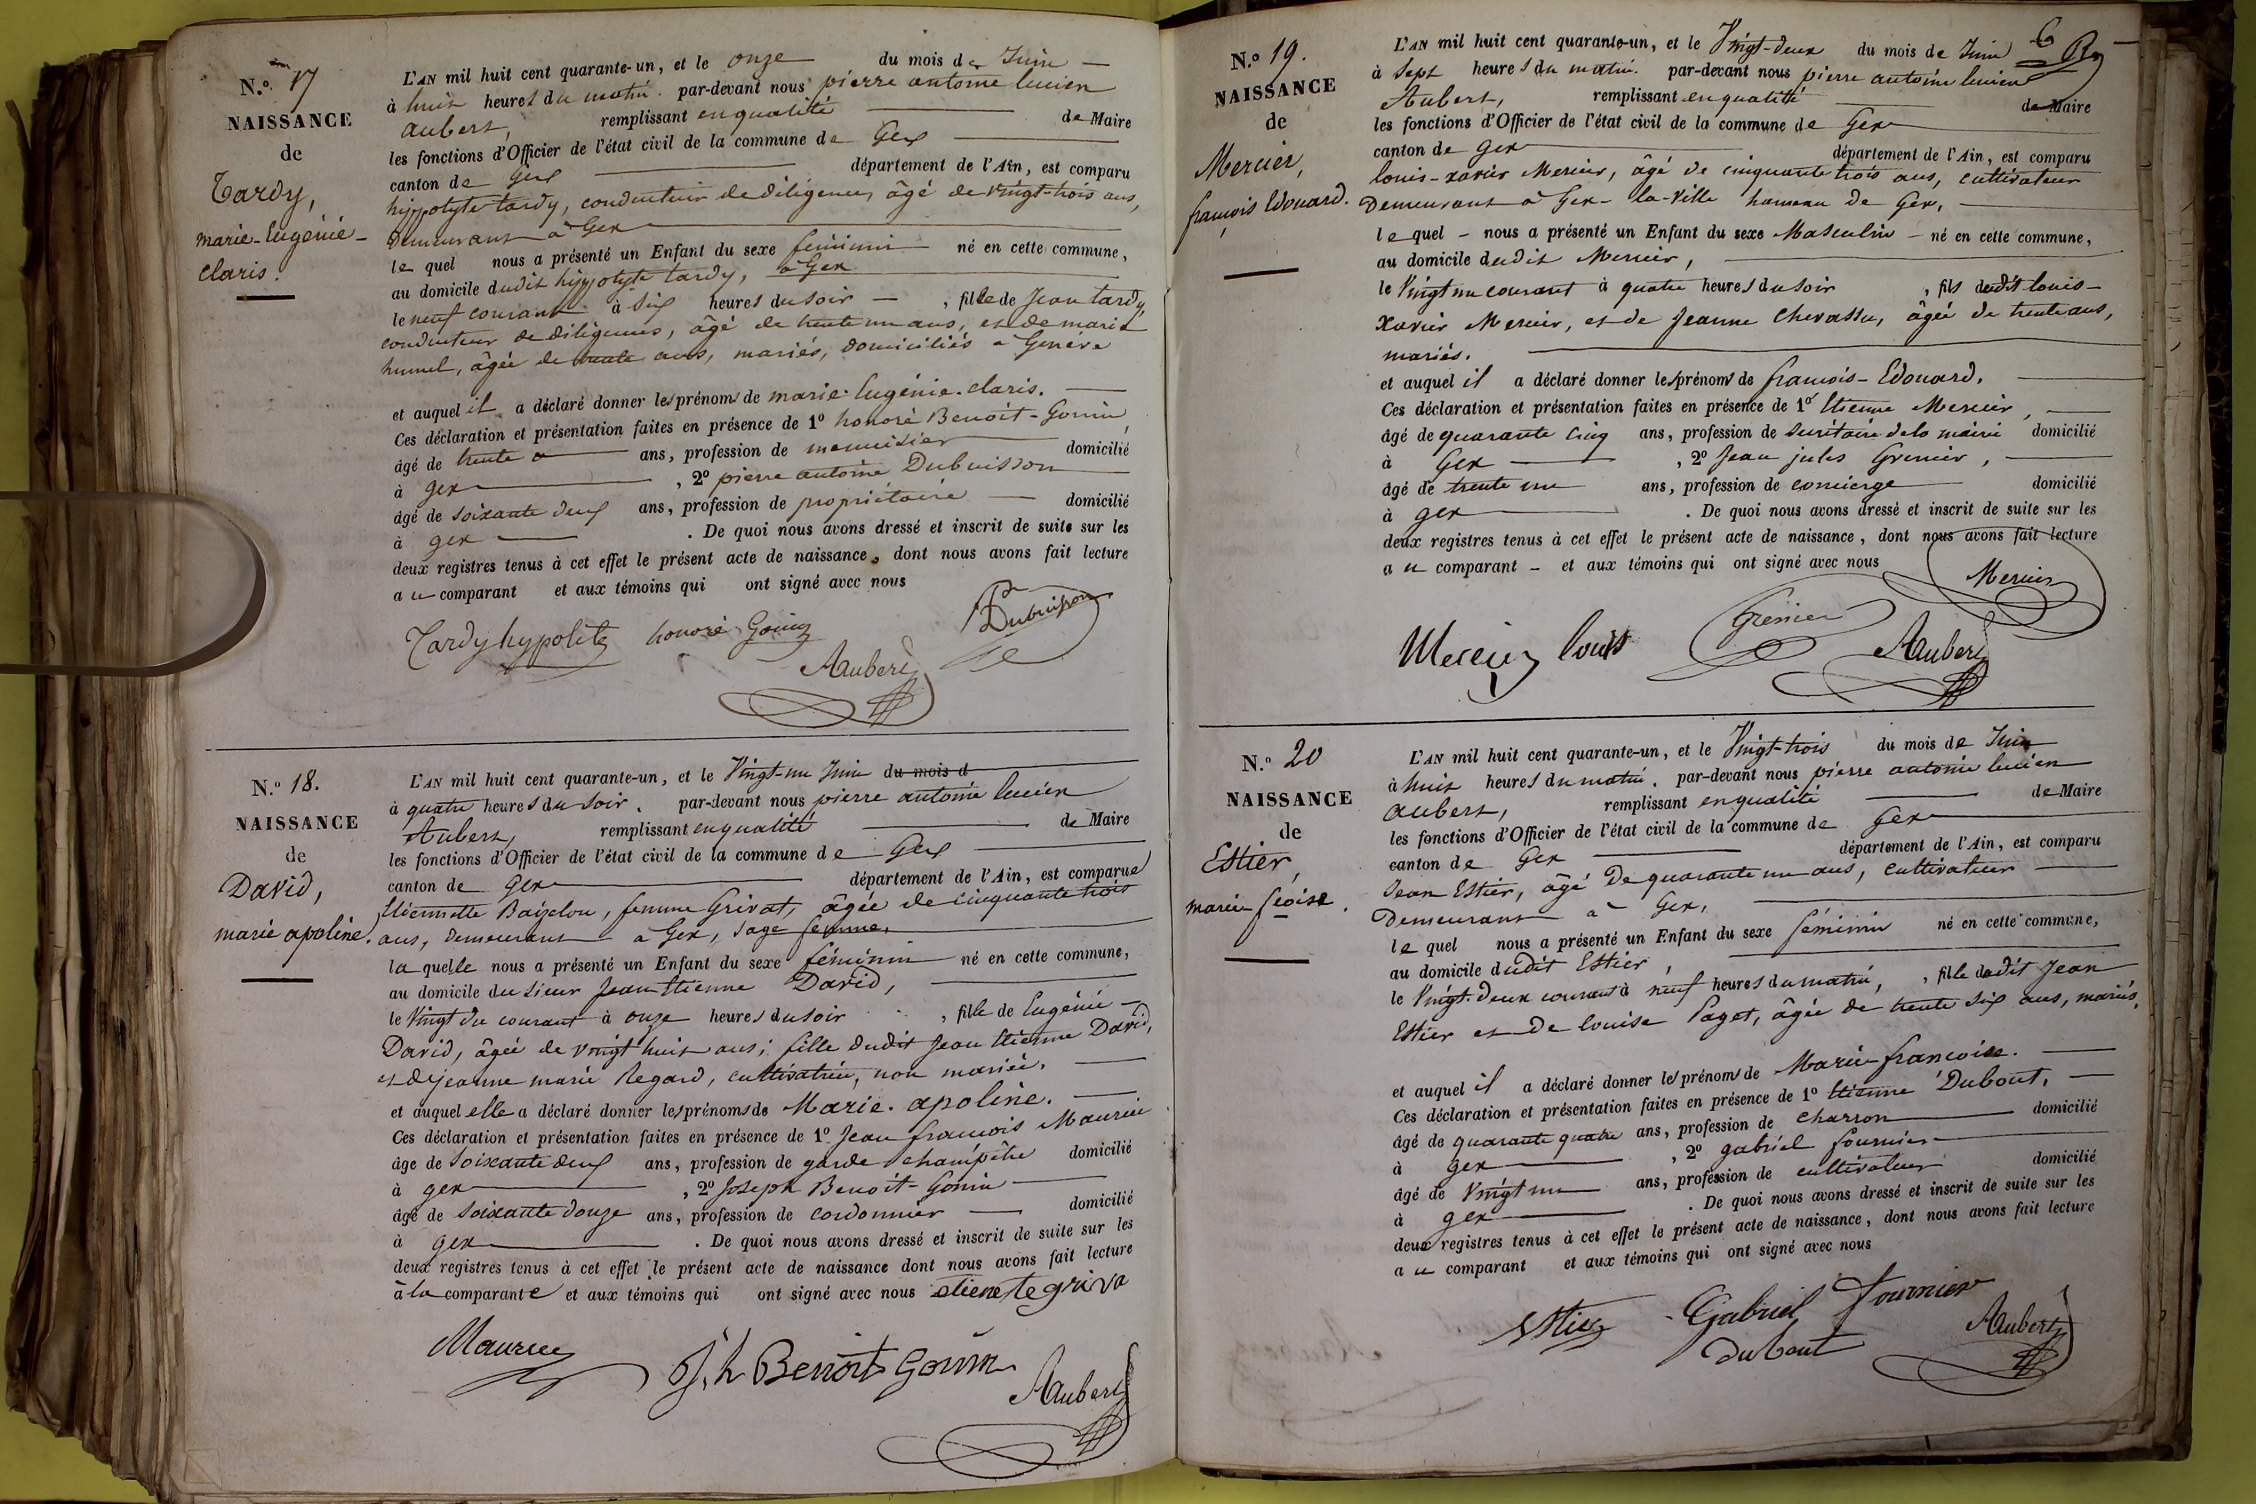 N.º 17
NAISSANCE
de
Tardy,
marie-Eugénie-
claris.
L'AN mil huit cent quarante-un, et le onze du mois de Juin
à huit heures du matin. par-devant nous pierre antoine lucien
aubert, remplissant en qualité de Maire
les fonctions d'Officier de l'état civil de la commune de Gex
canton de Gex département de l'Ain, est comparu
hippolyte tardy, conducteur de diligences, âgé de vingt-trois ans,
Demeurant à Gex
le quel nous a présenté un Enfant du sexe féminin né en cette commune,
au domicile dudit hippolyte tardy, à Gex
le neuf courant à six heures du soir , fille de Jean tardy,
conducteur de diligences, âgé de trente un ans, et de marie
humel, âgée de trente ans, mariés, domiciliés à Genève
et auquel il a déclaré donner les prénoms de marie-Eugénie-claris.
Ces déclaration et présentation faites en présence de 1º honoré Benoit-Gonin,
âgé de trente ans, profession de menuisier domicilié
à gex , 2º pierre antoine Dubuisson
âgé de soixante deux ans, profession de propriétaire domicilié
à gex . De quoi nous avons dressé et inscrit de suite sur les
deux registres tenus à cet effet le présent acte de naissance, dont nous avons fait lecture
au comparant et aux témoins qui ont signé avec nous
Tardy hypolite honoré Gonin Dubuisson
Aubert
N.º 18.
NAISSANCE
de
David,
marie apoline.
L'AN mil huit cent quarante-un, et le Vingt-un Juin du mois d
à quatre heures du soir. par-devant nous pierre antoine lucien
Aubert, remplissant en qualité de Maire
les fonctions d'Officier de l'état civil de la commune de Gex
canton de Gex département de l'Ain, est comparue
Etiennette Baizelou, femme Grivat, âgée de cinquante trois
ans, demeurant à Gex, sage femme,
la quelle nous a présenté un Enfant du sexe féminin né en cette commune,
au domicile du sieur Jean Etienne David,
le Vingt du courant à onze heures du soir , fille de Eugénie
David, âgée de vingt huit ans; fille dudit Jean Etienne David,
et de jeanne marie Regard, cultivatrice, non mariée.
et auquel elle a déclaré donner les prénoms de Marie-apoline.
Ces déclaration et présentation faites en présence de 1º Jean françois Maurice
âgé de soixante deux ans, profession de garde champêtre domicilié
à gex , 2º Joseph Benoit-Gonin
âgé de soixante douze ans, profession de cordonnier domicilié
à gex . De quoi nous avons dressé et inscrit de suite sur les
deux registres tenus à cet effet le présent acte de naissance dont nous avons fait lecture
à la comparante et aux témoins qui ont signé avec nous etienete griva
Maurice J.h Benoit Gonin Aubert
6
N.º 19.
NAISSANCE
de
Mercier,
françois Edouard.
L'AN mil huit cent quarante-un, et le Vingt-deux du mois de Juin
à sept heures du matin. par-devant nous pierre antoine lucien
Aubert, remplissant en qualité de Maire
les fonctions d'Officier de l'état civil de la commune de Gex
canton de gex département de l'Ain, est comparu
louis-xavier Mercier, âgé de cinquante trois ans, cultivateur
Demeurant à Gex-la-Ville hameau de Gex,
le quel nous a présenté un Enfant du sexe Masculin né en cette commune,
au domicile dudit Mercier,
le Vingt un courant à quatre heures du soir , fils dudit louis-
Xavier Mercier, et de Jeanne Chevassu, âgée de trente ans,
mariés.
et auquel il a déclaré donner les prénoms de françois-Edouard.
Ces déclaration et présentation faites en présence de 1º Etienne Mercier,
âgé de quarante cinq ans, profession de secrétaire de la mairie domicilié
à Gex , 2º Jean jules Grenier,
âgé de trente un ans, profession de concierge domicilié
à gex . De quoi nous avons dressé et inscrit de suite sur les
deux registres tenus à cet effet le présent acte de naissance, dont nous avons fait lecture
au comparant et aux témoins qui ont signé avec nous
Mercier
Mercier louis Grenier Aubert
N.º 20
NAISSANCE
de
Estier,
marie fçoise.
L'AN mil huit cent quarante-un, et le Vingt-trois du mois de Juin
à huit heures du matin. par-devant nous pierre antoine lucien
aubert, remplissant en qualité de Maire
les fonctions d'Officier de l'état civil de la commune de Gex
canton de Gex département de l'Ain, est comparu
Jean Estier, âgé De quarante un ans, cultivateur
Demeurant à Gex,
le quel nous a présenté un Enfant du sexe féminin né en cette commune,
au domicile dudit Estier,
le Vingt-deux courant à neuf heures du matin, , fille dudit Jean
Estier et De louise Paget, âgée de trente six ans, mariés,
et auquel il a déclaré donner les prénoms de Marie-françoise.
Ces déclaration et présentation faites en présence de 1º Etienne Dubout,
âgé de quarante quatre ans, profession de charron domicilié
à gex , 2º gabriel fournier
âgé de Vingt un ans, profession de cultivateur domicilié
à gex . De quoi nous avons dressé et inscrit de suite sur les
deux registres tenus à cet effet le présent acte de naissance, dont nous avons fait lecture
au comparant et aux témoins qui ont signé avec nous
Estier Gabriel Fournier
Dubout Aubert